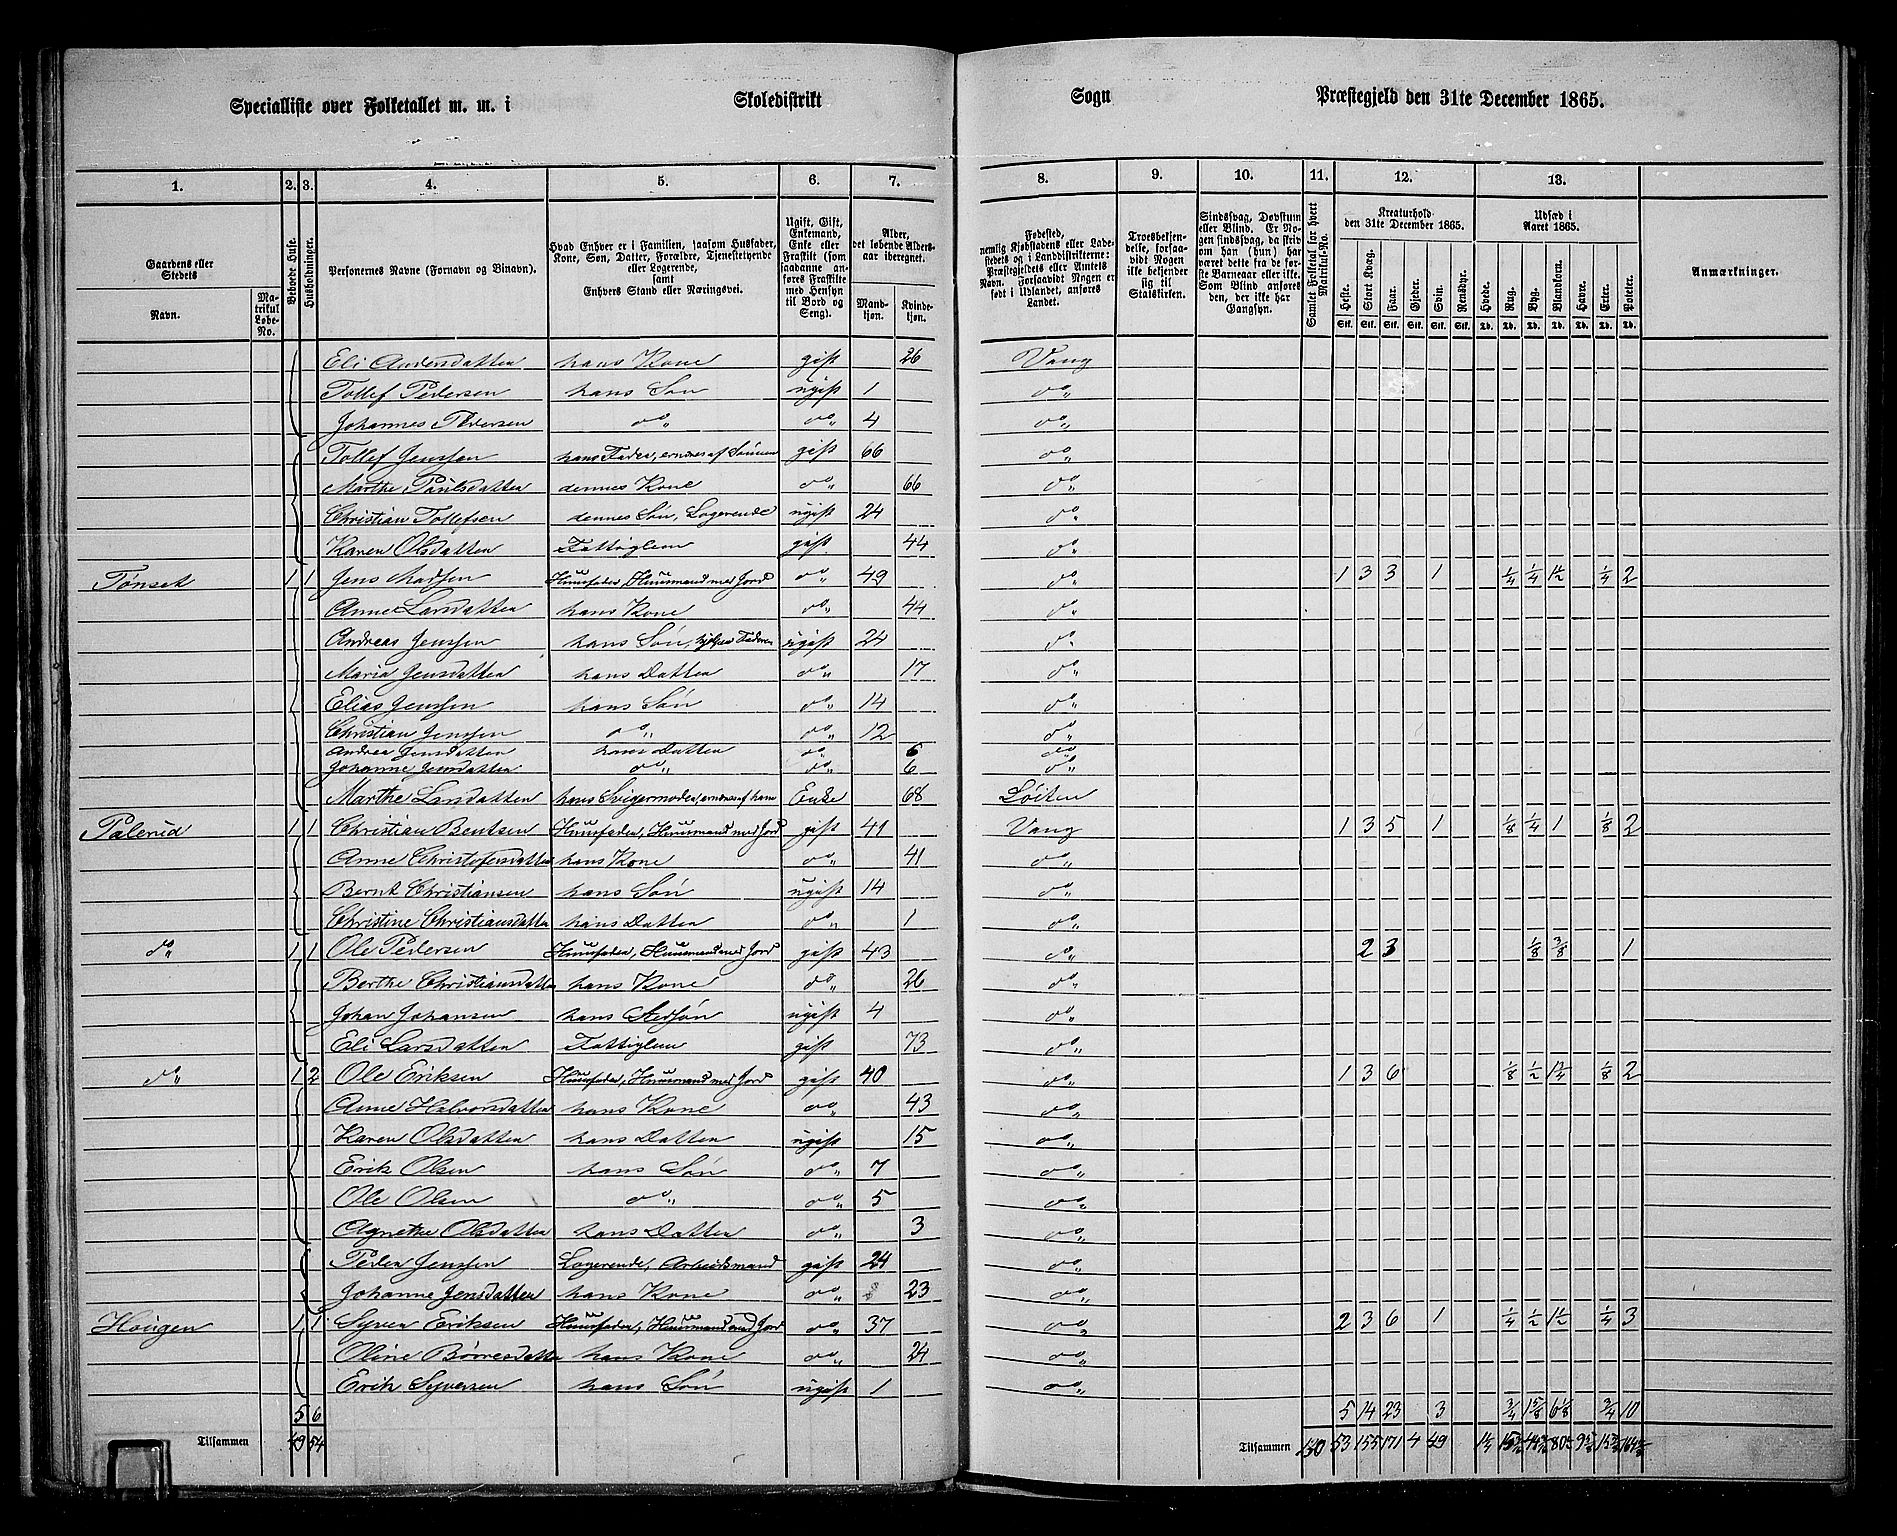 Specialliste over Folketallet m. m. i Skoledistrikt Sogn Præstegjeld den 31te December 1865.
1. 2. 3. 4. 5. 6. 7. 8. 9. 10. 11. 12. 13.
Gaardens eller Stedets Navn.
Matrikul Løbe-No.
Beboede Huse.
Husholdninger.
Personernes Navne (Fornavn og Binavn).
Hvad Enhver er i Familien, saasom Husfader, Kone, Søn, Datter, Forældre, Tjenestetyende eller Logerende, samt Enhvers Stand eller Næringsvei.
Ugift, Gift, Enkemand, Enke eller Fraskilt (som saadanne anføres Fraskilte med Hensyn til Bord og Seng).
Alder, det løbende Aldersaar iberegnet.
Mandkjøn. Kvindekjøn.
Fødested, nemlig Kjøbstadens eller Ladestedets og i Landdistrikterne: Præstegjeldets eller Amtets Navn. Forsaavidt Nogen er født i Udlandet, anføres Landet.
Troesbekjendelse, forsaavidt Nogen ikke bekjender sig til Statskirken.
Sindssvag, Døvstum eller Blind. Er Nogen sindssvag, da skrives om han (hun) har været dette fra de første Barneaar eller ikke. Som Blind anføres den, der ikke har Gangsyn.
Samlet Folketal for hvert Matrikul-No.
Kreaturhold den 31te December 1865.
Heste. Stort Kvæg. Faar. Gjeder. Svin. Rensdyr.
Udsæd i Aaret 1865.
Hvede. Rug. Byg. Blandkorn. Havre. Erter. Poteter.
Anmærkninger.
Stk. Stk. Stk. Stk. Stk. Stk. Td. Td. Td. Td. Td. Td. Td.
Eli Andersdatter hans Kone gift 26 Vang
Tollef Pedersen hans Søn ugift 1 do„
Johannes Pedersen do„ do„ 4 do„
Tollef Jenssen hans Fader, ernæres af Sønnen gift 66 do„
Marthe Paulsdatter dennes Kone do„ 66 do„
Christian Tollefsen dennes Søn, Logerende ugift 24 do„
Karen Olsdatter Fattiglem gift 44 do„
Tønset 1 1 Jens Madsen Huusfader, Huusmand med Jord do„ 49 do„ 1 3 3 1 1/4 1/4 1½ 1/4 2
Anne Larsdatter hans Kone do„ 44 do„
Andreas Jenssen hans Søn, hjelper Faderen ugift 24 do„
Maria Jensdatter hans Datter do„ 17 do„
Elias Jenssen hans Søn do„ 14 do„
Christian Jenssen do„ do„ 12 do„
Andrea Jensdatter hans Datter do„ 6 do„
Johanne Jensdatter do„ do„ 6 do„
Marthe Larsdatter hans Svigermoder, ernæres af ham Enke 68 Løiten
Palerud 1 1 Christian Bentsen Huusfader, Huusmand med Jord gift 41 Vang 1 3 5 1 1/8 1/4 1 1/8 2
Anne Christofersdatter hans Kone do„ 41 do„
Bernt Christiansen hans Søn ugift 14 do„
Christine Christiansdatter hans Datter do„ 1 do„
do„ 1 1 Ole Pedersen Huusfader, Huusmand med Jord gift 43 do„ 2 3 1/8 3/8 1
Berthe Christiansdatter hans Kone do„ 26 do„
Johan Johansen hans Stedsøn ugift 4 do„
Eli Larsdatter Fattiglem gift 73 do„
do„ 1 2 Ole Eriksen Huusfader, Huusmand med Jord gift 40 do„ 1 3 6 1/8 1/2 1¾ 1/8 2
Anne Halvorsdatter hans Kone do„ 43 do„
Karen Olsdatter hans Datter ugift 15 do„
Erik Olsen hans Søn do„ 7 do„
Ole Olsen do„ do„ 5 do„
Agnethe Olsdatter hans Datter do„ 3 do„
Peder Jenssen Logerende, Arbeidsmand gift 24 do„
Johanne Jensdatter hans Kone do„ 23 do„
Hougen 1 1 Syver Eriksen Huusfader, Huusmand med Jord do„ 37 do„ 2 3 6 1 1/4 1/2 1½ 1/4 3
Oline Børresdatter hans Kone do„ 24 do„
Erik Syversen hans Søn ugift 1 do„
5 6 5 14 23 3 3/4 1 5/8 6 1/8 3/4 10
Tilsammen 49 54 Tilsammen 130 53 155 171 4 49